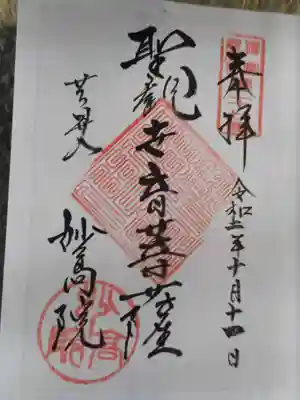 奉拝
令和二年十月十一日
聖観世音菩薩
妙高院